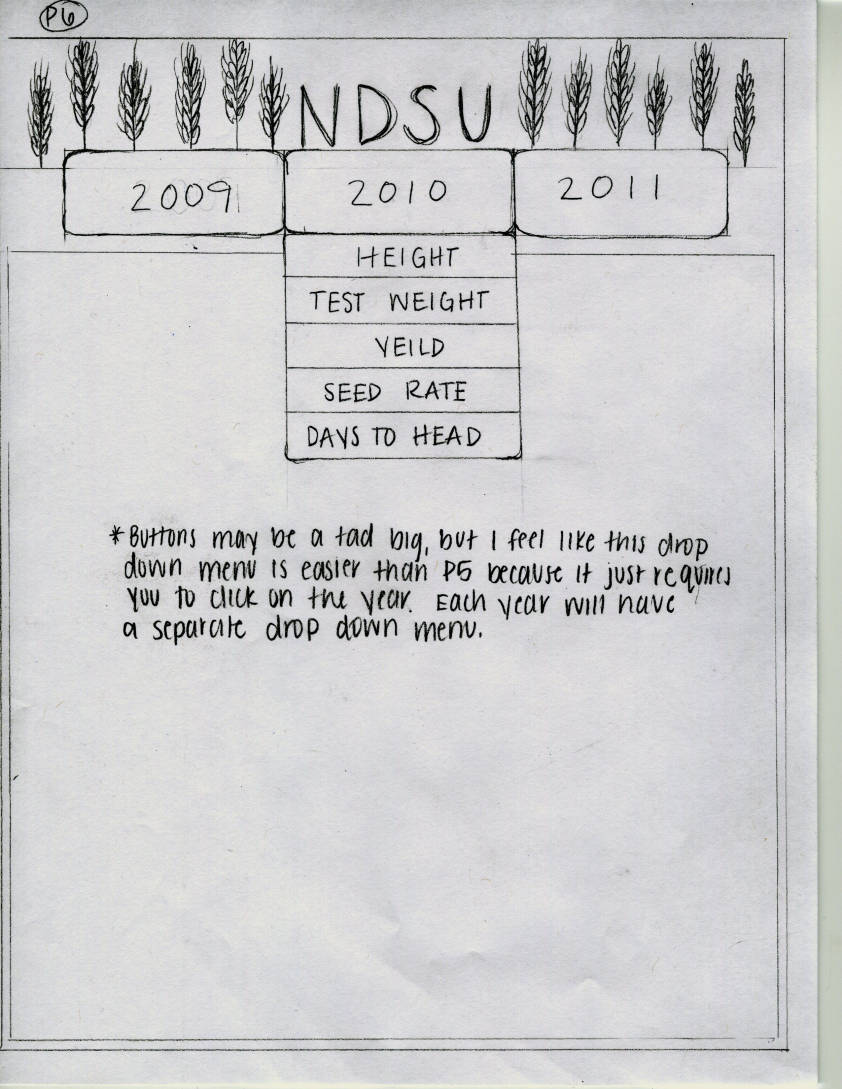 P6
NDSU
2009 2010 2011
HEIGHT
TEST WEIGHT
YEILD
SEED RATE
DAYS TO HEAD
*Buttons may be a tad big, but I feel like this drop
down menu is easier than P5 because it just requires
you to click on the year. Each year will have
a separate drop down menu.